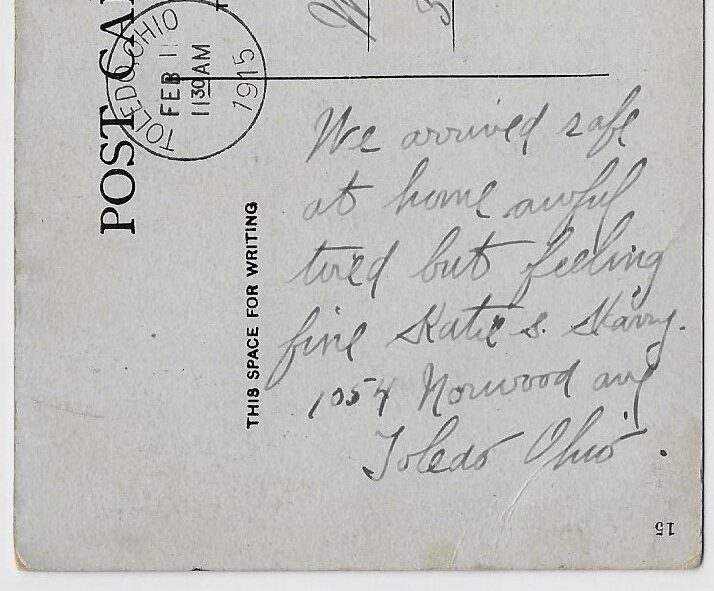 POST CA
TOLEDO, OHIO
FEB 11
1130AM
1915
THIS SPACE FOR WRITING
We arrived safe
at home awful
tired but feeling
fine Katie & Harry.
1054 Norwood ave
Toledo Ohio.
15